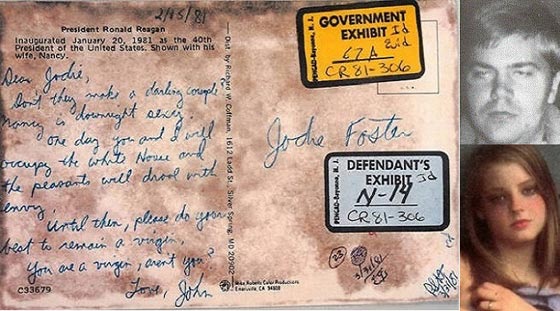 2/15/81
President Ronald Reagan
Inaugurated January 20, 1981 as the 40th
President of the United States. Shown with his
wife, Nancy.
Dear Jodie,
Don't they make a darling couple?
Nancy is downright sexy.
One day you and I will
occupy the White House and
the peasants will drool with
envy.
Until then, please do your
best to remain a virgin.
You are a virgin, aren't you?
Love, John
C33679
Dist. by Richard W. Coffman, 1612 Ladd St., Silver Spring, MD 20902
Mike Roberts Color Productions
Emeryville, CA 94608
Jodie Foster
PENGAD-Bayonne, N. J.
GOVERNMENT
EXHIBIT Id
67A Evid
CR 81-306
PENGAD-Bayonne, N. J.
DEFENDANT'S
EXHIBIT Id
N-14
CR 81-306
23
3/31/81
3/31/81